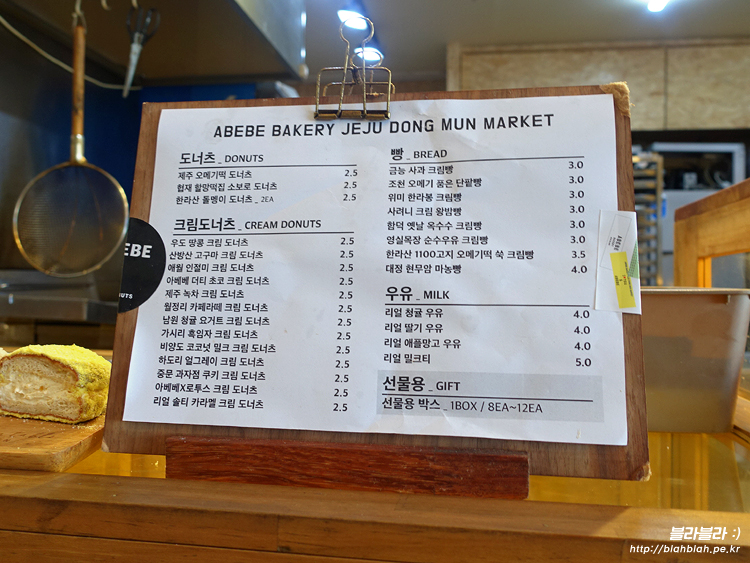 ABEBE BAKERY JEJU DONG MUN MARKET
도너츠 _ DONUTS
제주 오메기떡 도너츠 2.5
협재 할망떡집 소보로 도너츠 2.5
한라산 돌멩이 도너츠 _ 2EA 2.5
크림도너츠 _ CREAM DONUTS
우도 땅콩 크림 도너츠 2.5
산방산 고구마 크림 도너츠 2.5
애월 인절미 크림 도너츠 2.5
아베베 더티 초코 크림 도너츠 2.5
제주 녹차 크림 도너츠 2.5
월정리 카페라떼 크림 도너츠 2.5
남원 청귤 요거트 크림 도너츠 2.5
가시리 흑임자 크림 도너츠 2.5
비양도 코코넛 밀크 크림 도너츠 2.5
하도리 얼그레이 크림 도너츠 2.5
중문 과자점 쿠키 크림 도너츠 2.5
아베베X로투스 크림 도너츠 2.5
리얼 솔티 카라멜 크림 도너츠 2.5
빵 _ BREAD
금능 사과 크림빵 3.0
조천 오메기 품은 단팥빵 3.0
위미 한라봉 크림빵 3.0
사려니 크림 왕밤빵 3.0
함덕 옛날 옥수수 크림빵 3.0
영실목장 순수우유 크림빵 3.0
한라산 1100고지 오메기떡 쑥 크림빵 3.5
대정 현무암 마농빵 4.0
우유 _ MILK
리얼 청귤 우유 4.0
리얼 딸기 우유 4.0
리얼 애플망고 우유 4.0
리얼 밀크티 5.0
선물용 _ GIFT
선물용 박스 _ 1BOX / 8EA~12EA
EBE
NUTS
ABEBE
블라블라 :)
http://blahblah.pe.kr